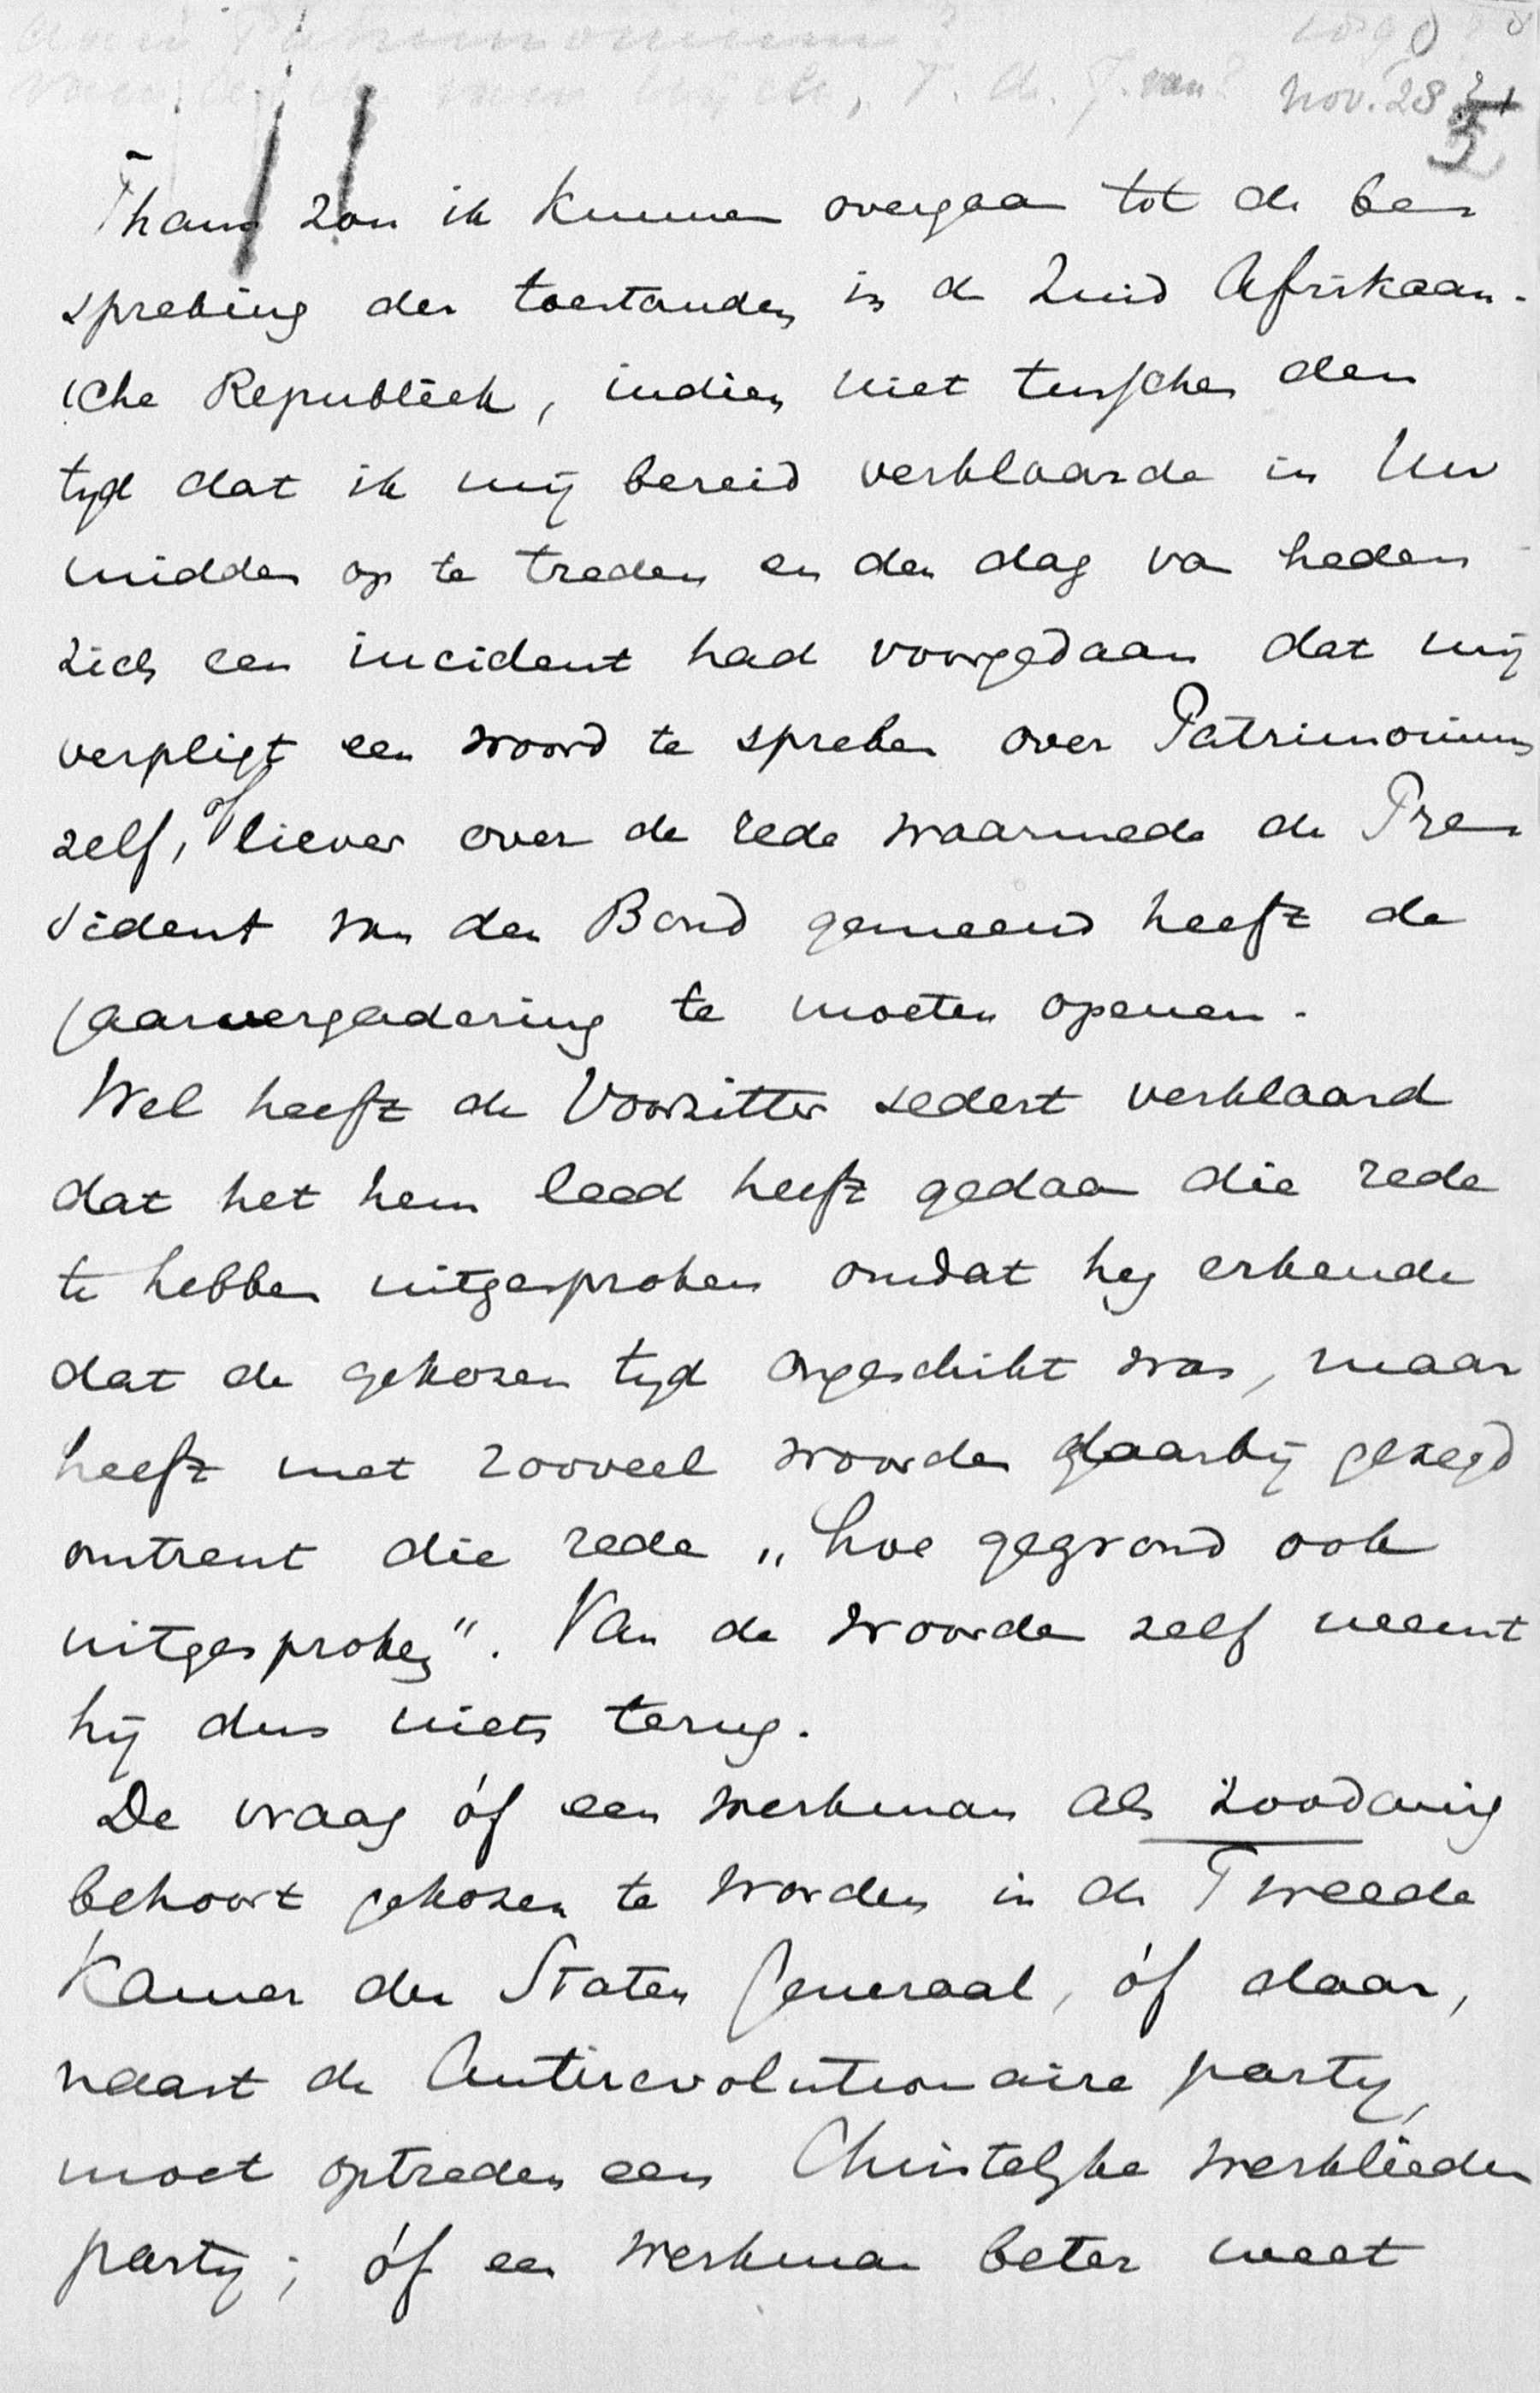 nov. 28
5
Thans zou ik kunnen overgaan tot de be-
spreking der toestanden in de Zuid Afrikaan-
sche Republiek, indien niet tusschen den
tijd dat ik mij bereid verklaarde in Uw
midden op te treden en den dag van heden
zich een incident had voorgedaan dat mij
verpligt een woord te spreken over Patrimonium
zelf, of liever over de rede waarmede de Pre-
sident van den Bond gemeend heeft de
jaarvergadering te moeten openen.
Wel heeft de Voorzitter sedert verklaard
dat het hem leed heeft gedaan die rede
te hebben uitgesproken omdat hij erkende
dat de gekozen tijd ongeschikt was, maar
heeft met zooveel woorden daarbij gezegd
omtrent die rede „hoe gegrond ook
uitgesproken". Van de woorden zelf neemt
hij dus niets terug.
De vraag óf een werkman als zoodanig
behoort gekozen te worden in de Tweede
Kamer der Staten Generaal, óf daar,
naast de Antirevolutionaire partij,
moet optreden een Christelijke werklieden
partij; óf een werkman beter weet